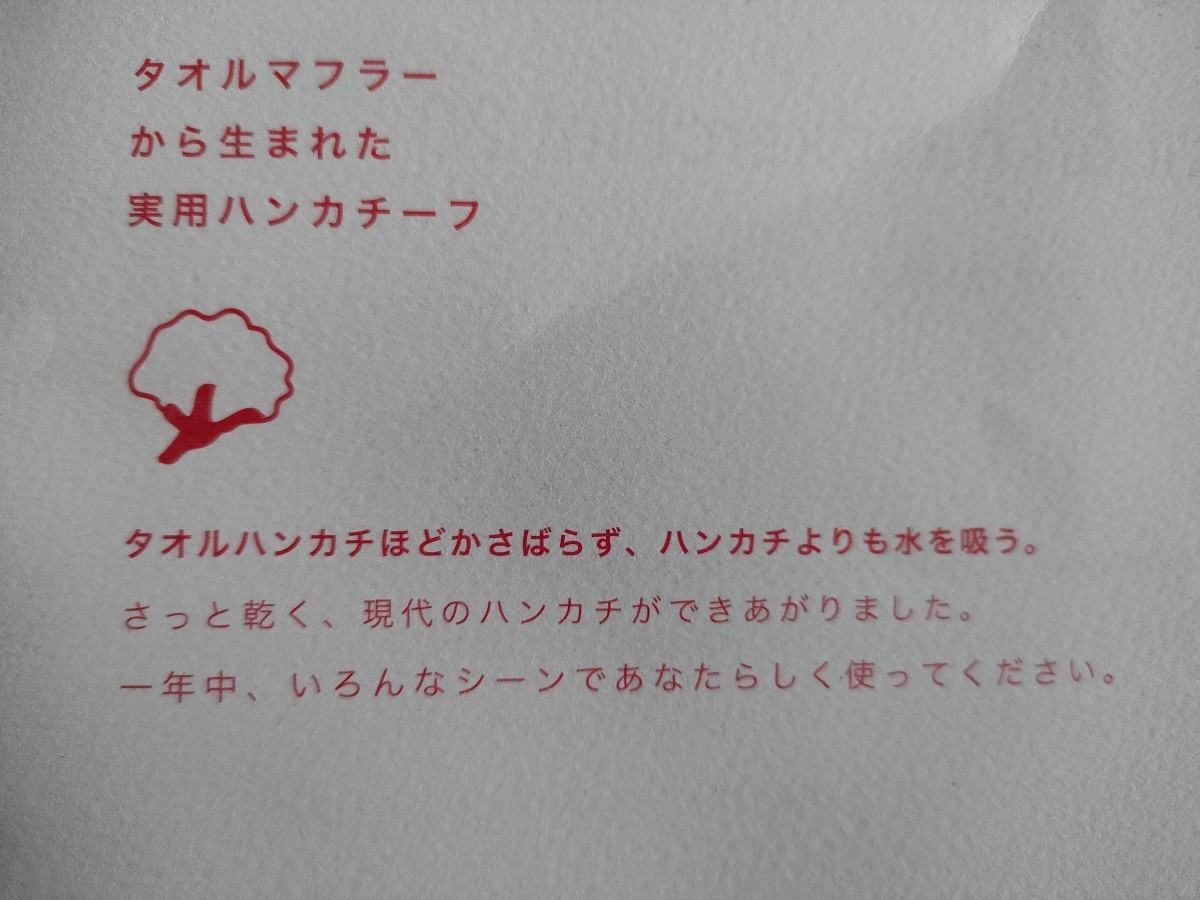 タオルマフラー
から生まれた
実用ハンカチーフ
タオルハンカチほどかさばらず、ハンカチよりも水を吸う。
さっと乾く、現代のハンカチができあがりました。
一年中、いろんなシーンであなたらしく使ってください。